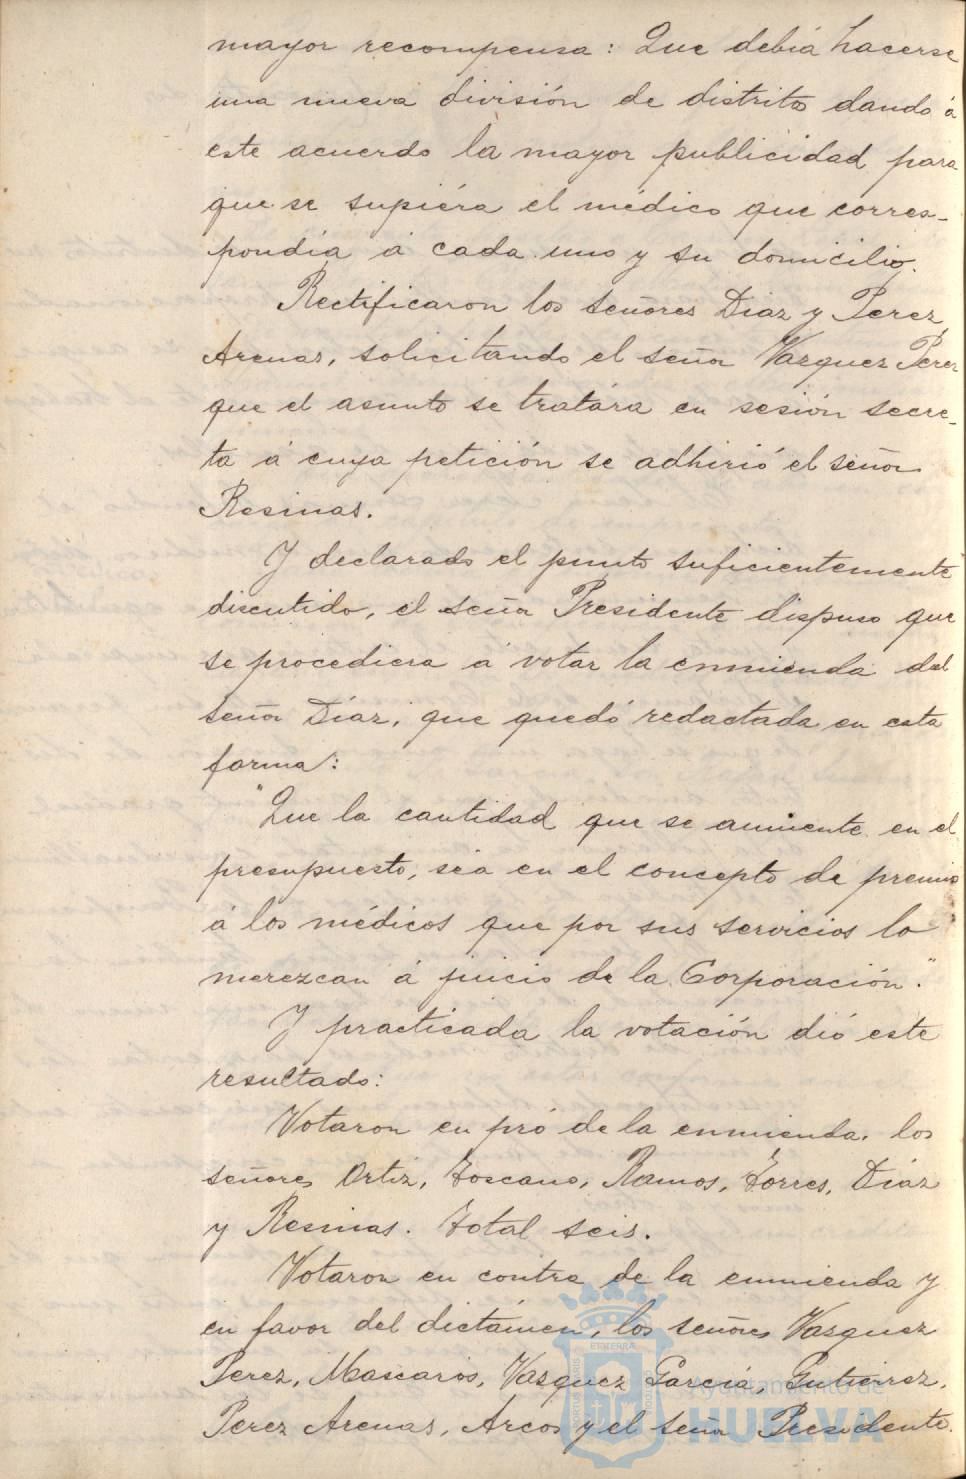 mayor recompensa: Que debia hacerse
una nueva división de distritos dando á
este acuerdo la mayor publicidad para
que se supiéra el médico que corres-
pondia á cada uno y su domicilio.
Rectificaron los señores Diaz y Perez
Arenas, solicitando el señor Vazquez Perez
que el asunto se tratára en sesión secre-
ta á cuya petición se adhirió el señor
Resinas.
Y declarado el punto suficientemente
discutido, el señor Presidente dispuso que
se procediera á votar la enmienda del
señor Díaz, que quedó redactada en esta
forma:
"Que la cantidad que se aumente en el
presupuesto, sea en el concepto de premio
á los médicos que por sus servicios lo
merezcan á juicio de la Corporación."
Y practicada la votación dió este
resultado:
Votaron en pró de la enmienda, los
señores Ortiz, Toscano, Ramos, Torres, Diaz
y Resinas. Total seis.
Votaron en contra de la enmienda y
en favor del dictámen, los señores Vazquez
Perez, Mascarós, Vazquez García, Gutierrez,
Perez Arenas, Arcos y el señor Presidente.
Ayuntamiento de
HUELVA